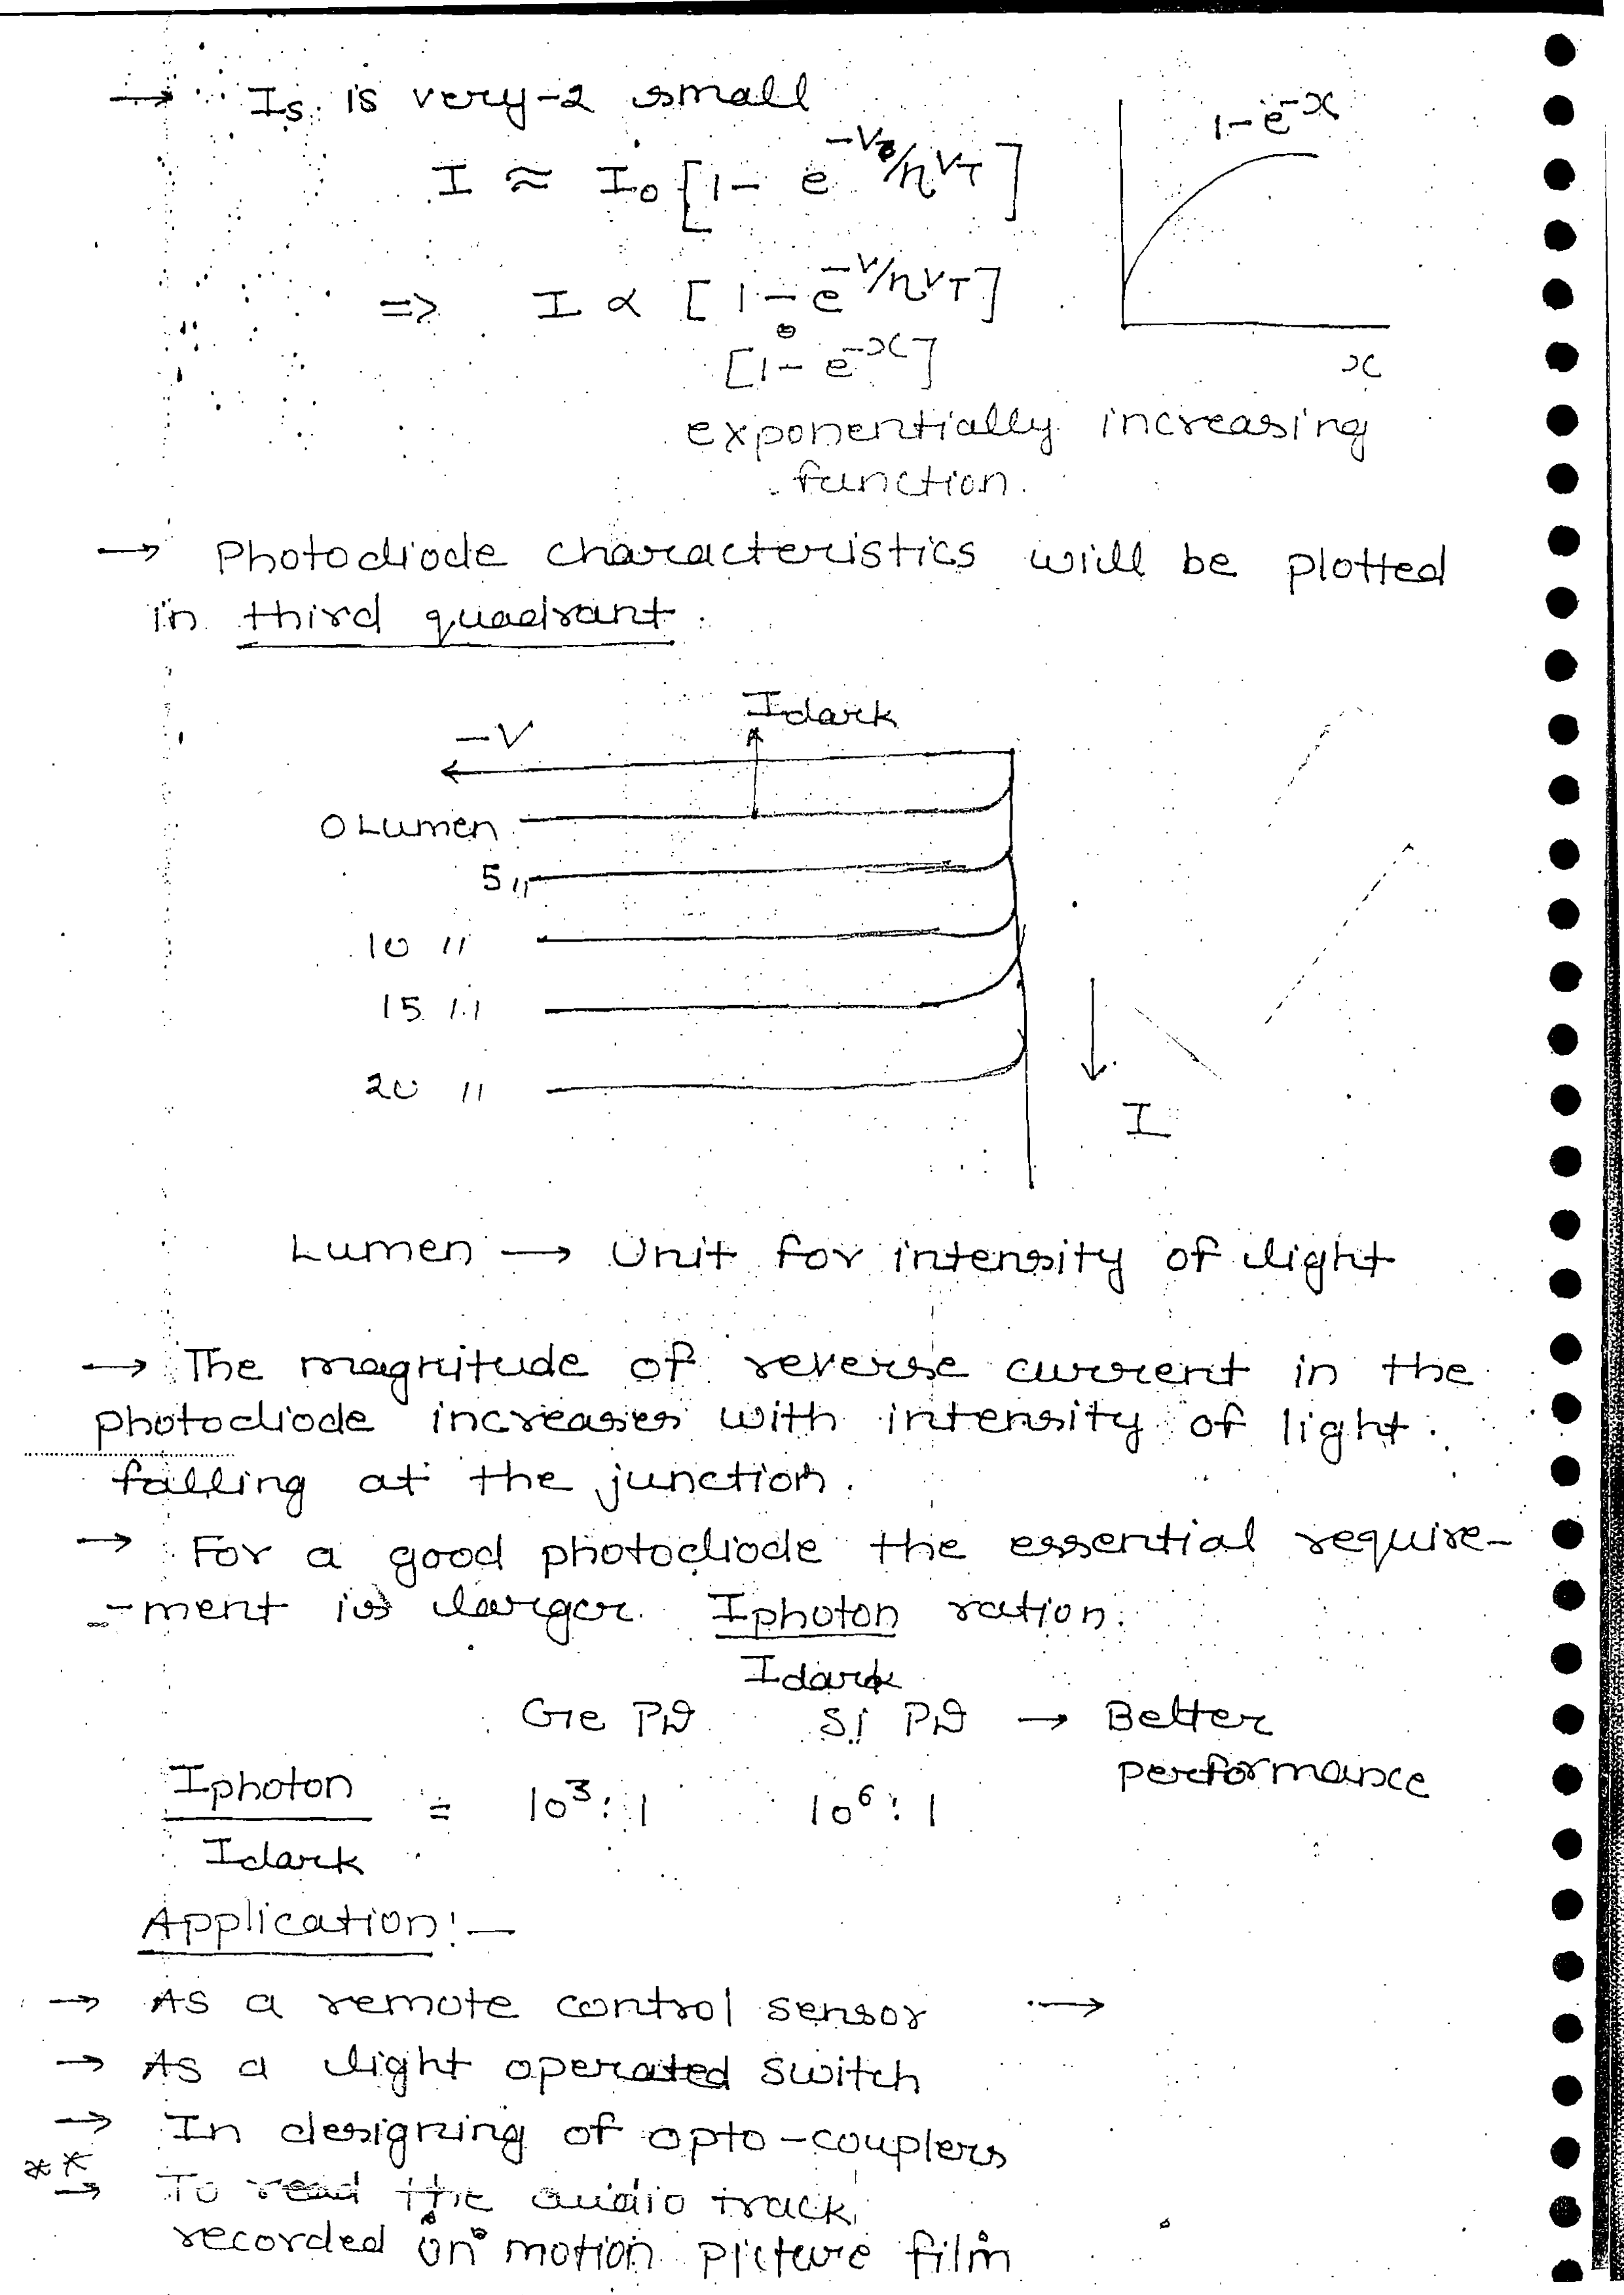 → Is is very-2 small
I ≈ I₀ [1 - e^-V/ηVT]
1-e^-x
⇒ I ∝ [1-e^-V/ηVT]
[1-e^-x]
x
exponentially increasing
function.
→ Photodiode characteristics will be plotted
in third quadrant.
Idark
-V
0 Lumen
5 〃
10 〃
15 〃
20 〃
I
Lumen → Unit for intensity of light
→ The magnitude of reverse current in the
photodiode increases with intensity of light.
falling at the junction.
→ For a good photodiode the essential require-
-ment is larger Iphoton ration.
Idark
Ge PD Si PD → Better
performance
Iphoton = 10³:1 10⁶:1
Idark
Application:-
→ As a remote control sensor →
→ As a light operated switch
→ In designing of opto-couplers
***
→ To read the audio track
recorded on motion picture film